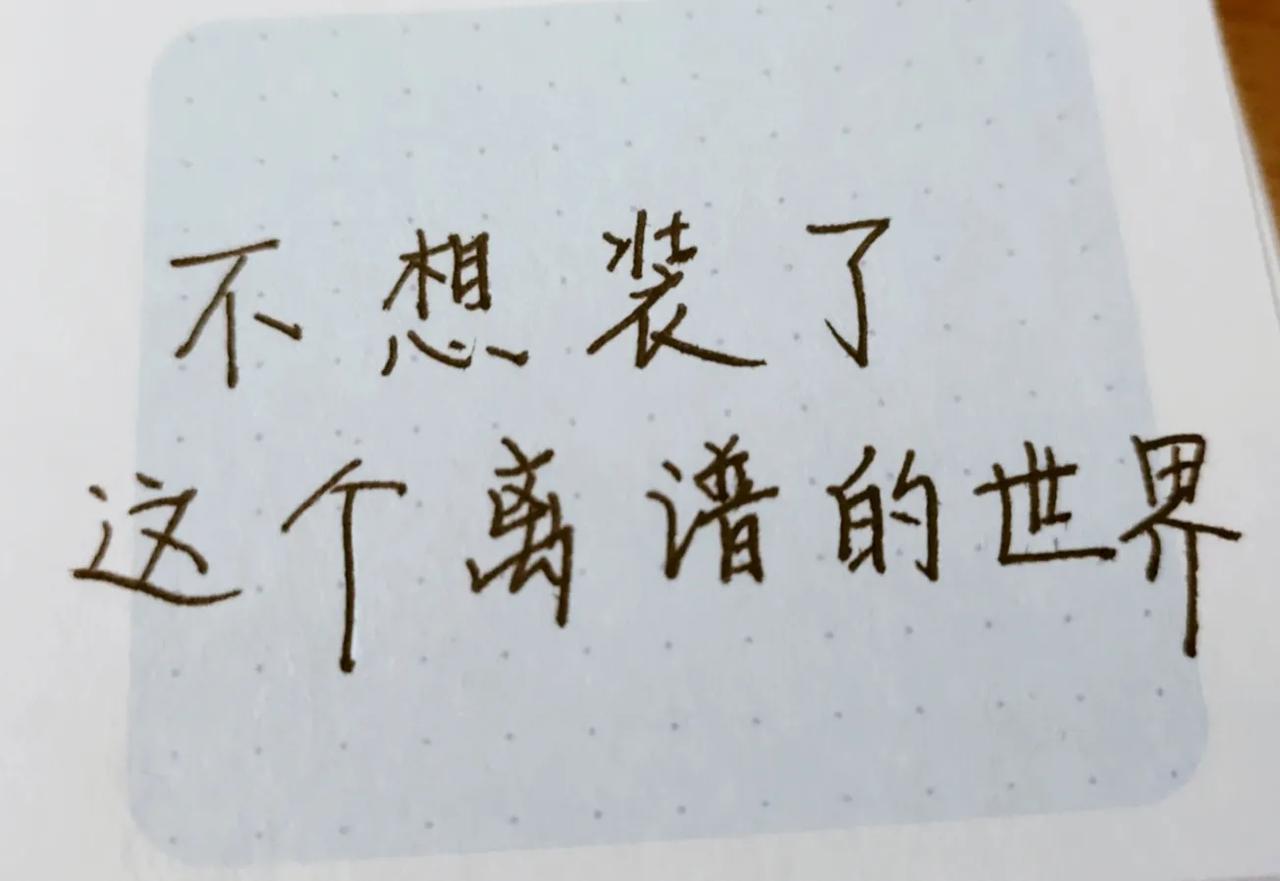 不想装了
这个离谱的世界